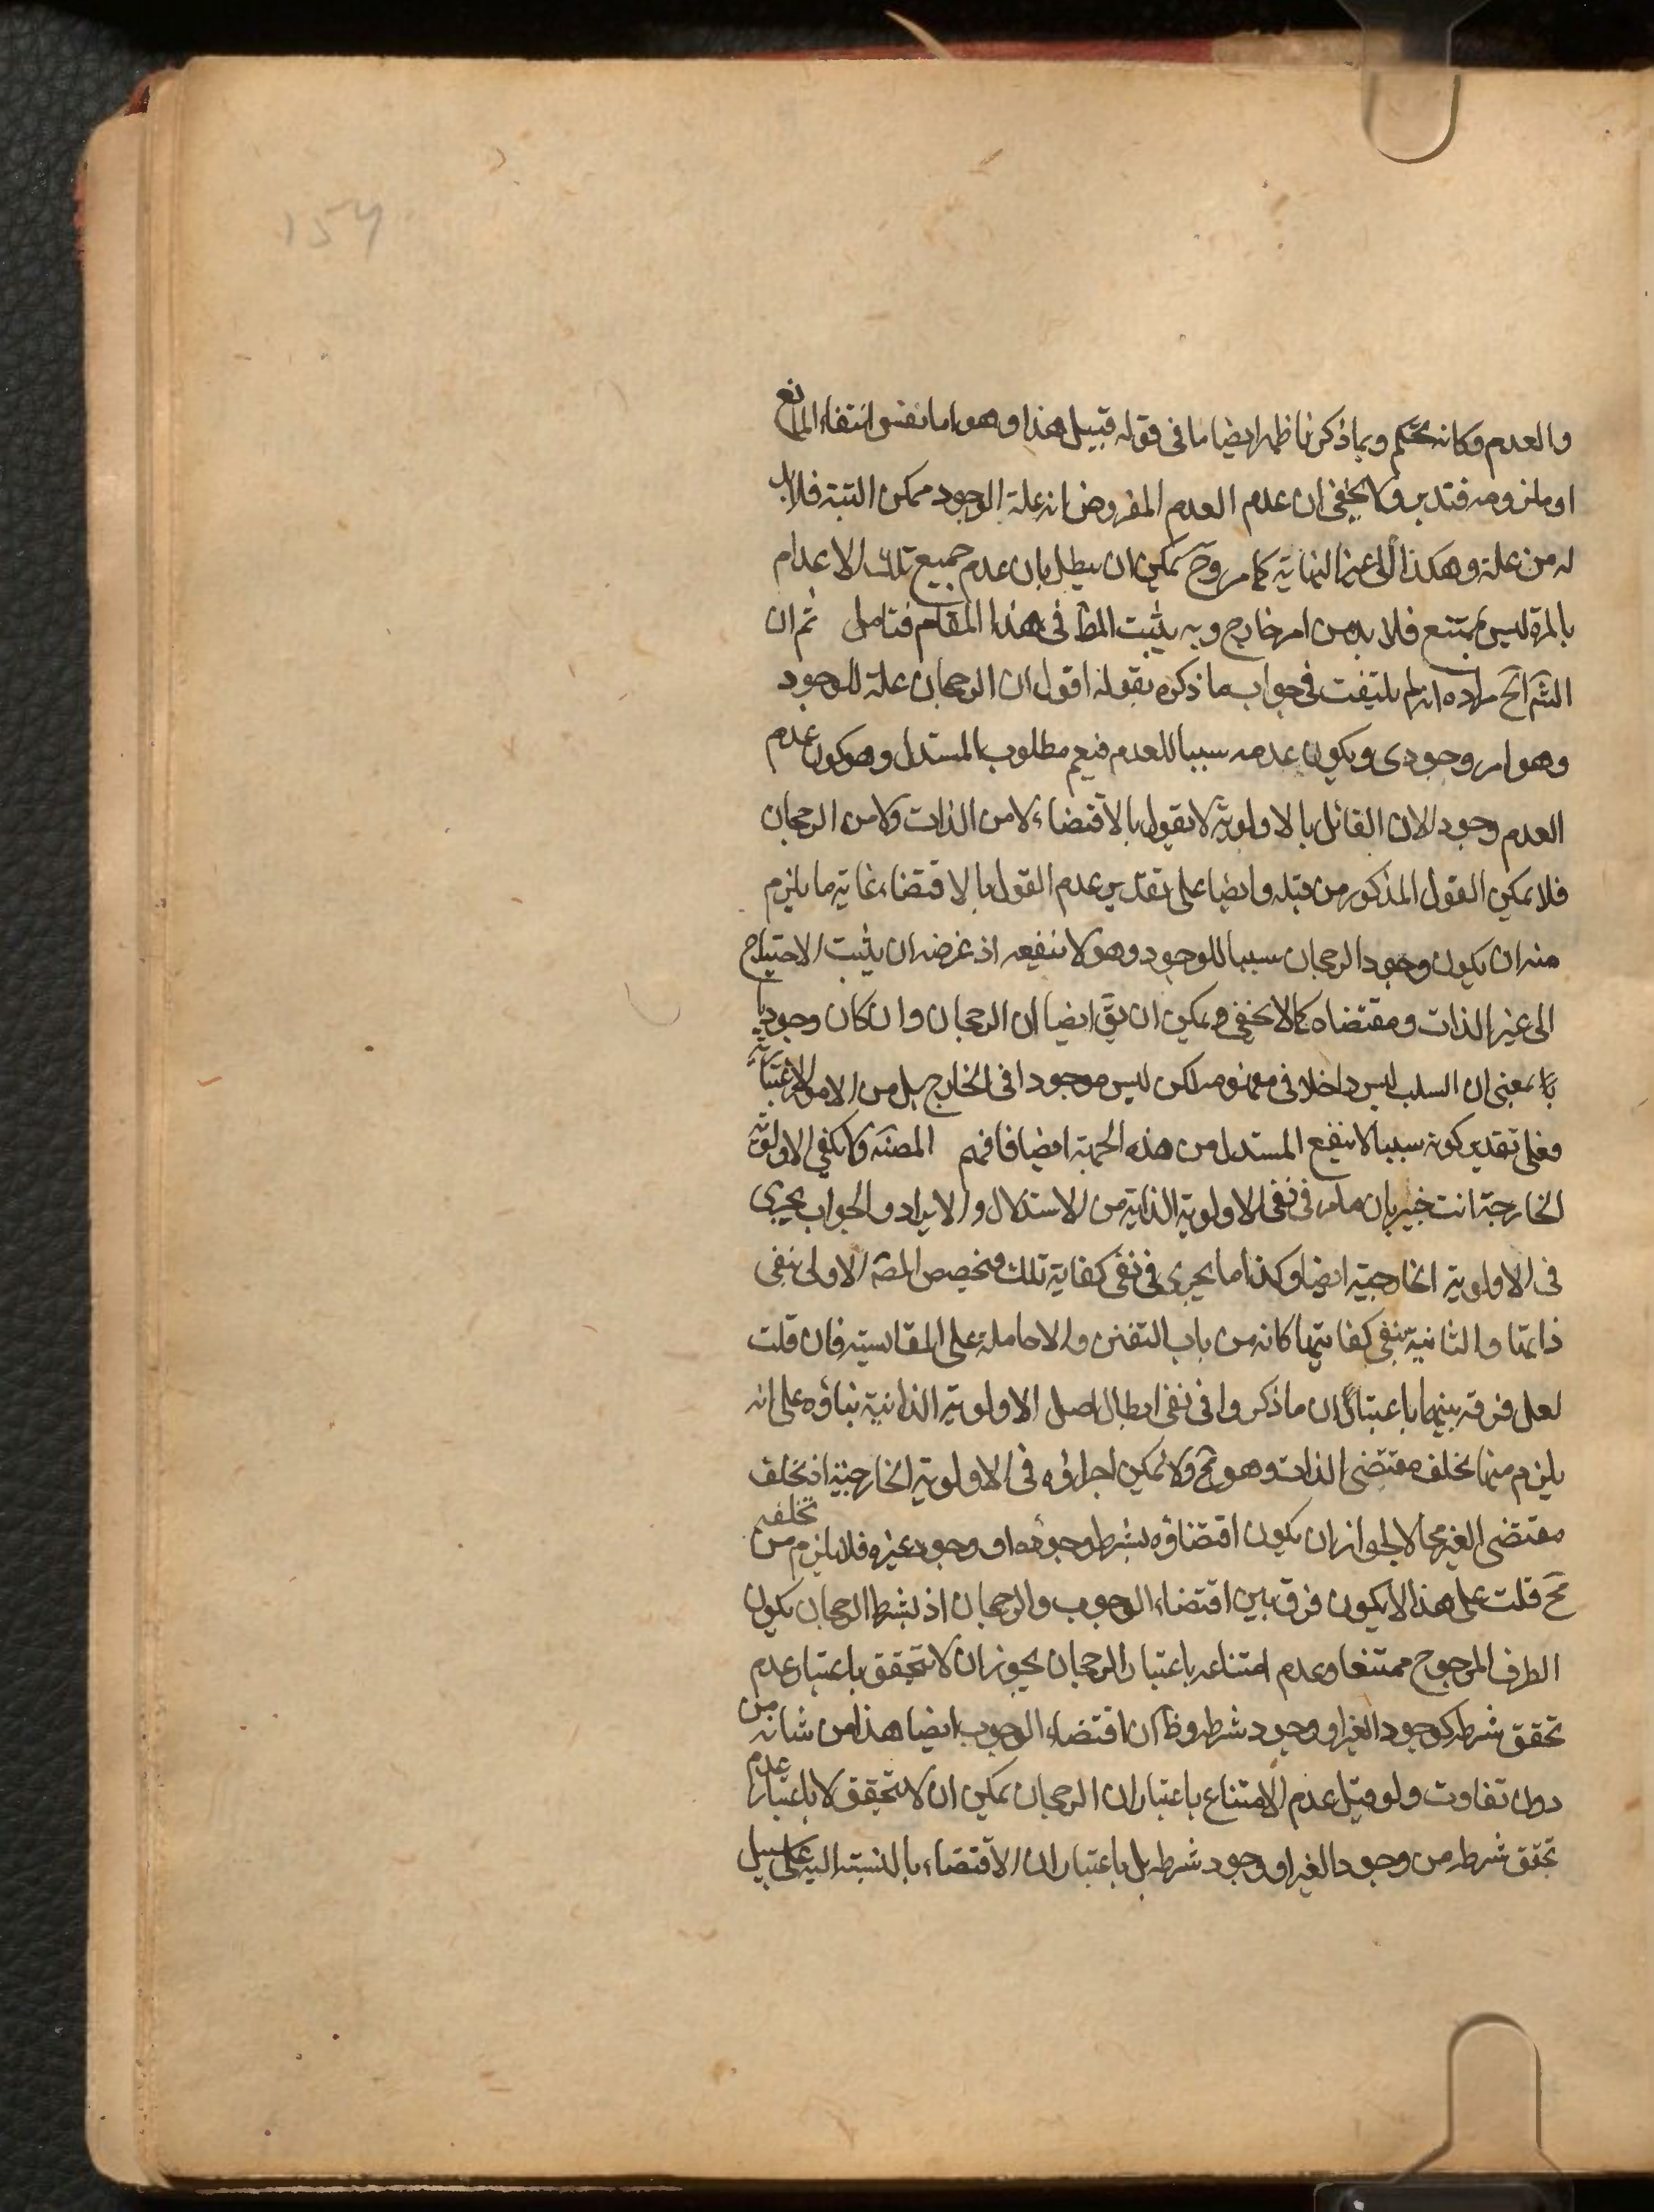 156
والعدم وكانه تحكم وبما ذكرنا ظهر ايضا ما فى قوله قبيل هذا وهو اما نفس انتفاء المانع
او ملزومه فتدبر ولا يخفى ان عدم العدم المفروض انه علة الوجود ممكن البتة فلا بد
له من علة وهكذا الى غير النهاية كما مر وح يمكن ان يبطل بان عدم جميع تلك الاعدام
بالمرة ليس بممتنع فلا بد من امر خارج وبه يثبت المط فى هذا المقام فتامل ثم ان
الش آلخ مراده انه لم يلتفت فى جواب ما ذكره بقوله اقول ان الرجحان علة للوجود
وهو امر وجودى ويكون عدمه سببا للعدم فيعم مطلوب المستدل وهو كون عدم
العدم وجود الان القائل بالاولوية لا يقول بالاقتضاء لا من الذات ولا من الرجحان
فلا يمكن القول المذكور من قبله وايضا على تقدير عدم القول بالاقتضاء غاية ما يلزم
منه ان يكون وجود الرجحان سببا للوجود وهو لا ينفعه اذ غرضه ان يثبت الاحتياج
الى غير الذات ومقتضاه كما لا يخفى ويمكن ان يق ايضا ان الرجحان وان كان وجوديا
بمعنى ان السلب ليس داخلا فى مفهومه لكن ليس موجودا فى الخارج بل من الامور الاعتبارية
فعلى تقدير كونه سببا لا ينفع المستدل من هذه الجهة ايضا فافهم المصنه ولا يكفى الاولوية
الخارجة انت خبير بان ما مر فى نفى الاولوية الذاتية من الاستدلال والايراد والجواب يجرى
فى الاولوية الخارجية ايضا وكذا ما يجرى فى نفى كفاية تلك وتخصيص المصه الاولى بنفى
ذاتها والثانية بنفى كفايتها كانه من باب التفنن والاحاملة على المقايسة فان قلت
لعل فرقه بينهما باعتبار ان ما ذكروا فى نفى ابطال اصل الاولوية الذاتية بناؤه على انه
يلزم منها تخلف مقتضى الذات وهو مح ولا يمكن اجراؤه فى الاولوية الخارجية اذ تخلف
مقتضى الغير محالا لجواز ان يكون اقتضاؤه بشرط وجوده او وجود غيره فلا يلزم من تخلفه
مح قلت على هذا لا يكون فرق بين اقتضاء الوجوب والرجحان اذ بشرط الرجحان يكون
الطرف المرجوح ممتنعا وعدم امتناعه باعتبار الرجحان يجوز ان لا يتحقق باعتبار عدم
تحقق شرط كوجود الغير او وجود شرطه وظ ان اقتضاء الوجوب ايضا هذا من شانه من
دون تفاوت ولو قيل عدم الامتناع باعتبار ان الرجحان يمكن ان لا يتحقق لا باعتبار عدم
تحقق شرطه من وجود الغير او وجود شرطه بل باعتبار ان الاقتضاء بالنسبة اليه على سبيل